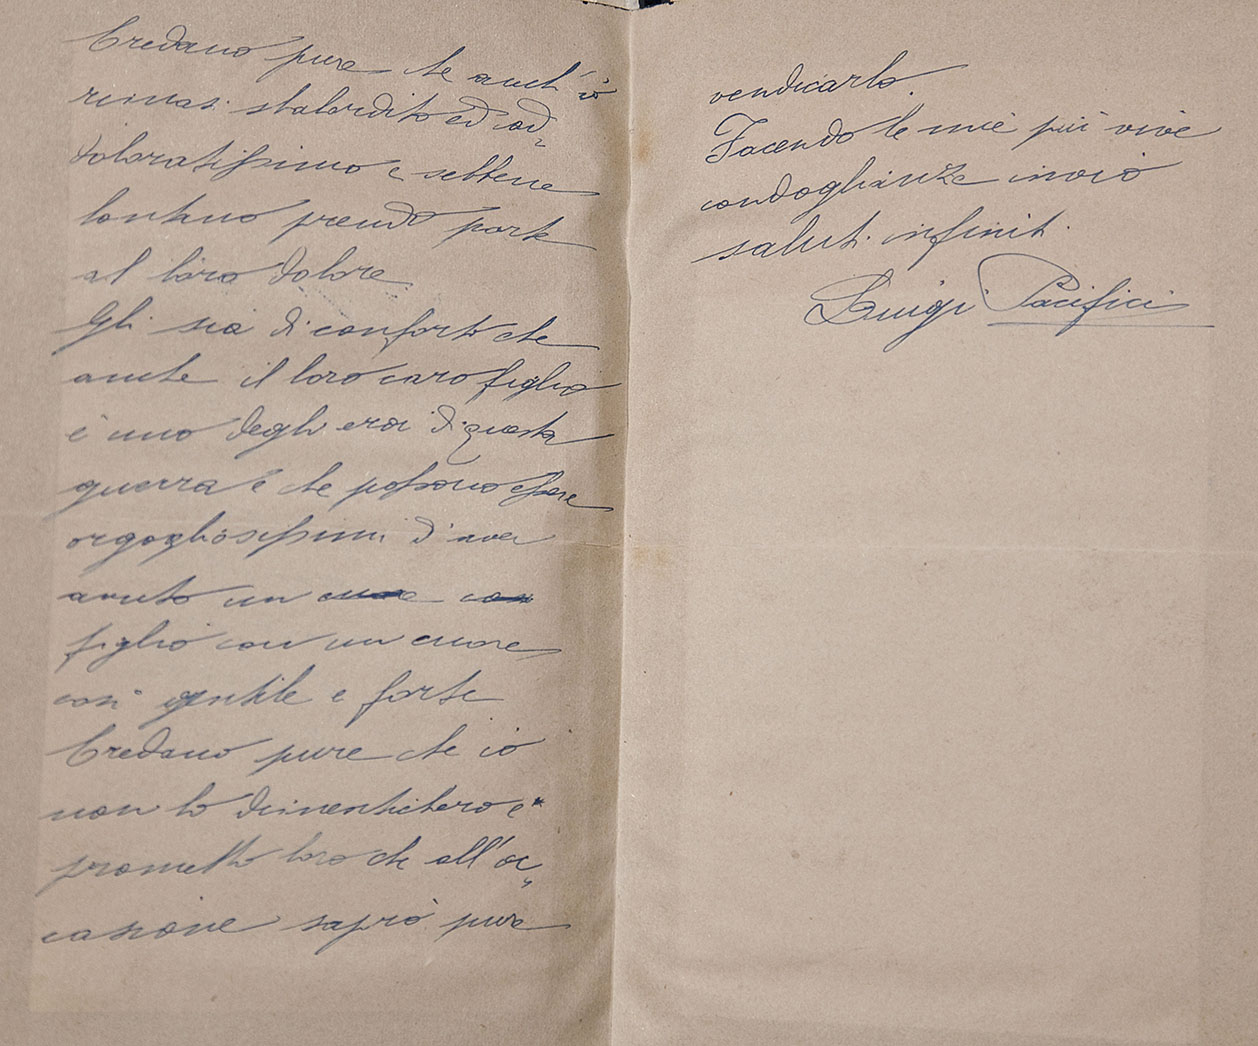 Credano pure che anch'io
rimasi sbalordito ed ad„
doloratissimo e sebbene
lontano prendo parte
al loro dolore.
Gli sia di conforto che
anche il loro caro figlio
è uno degli eroi di questa
guerra e che possono essere
orgogliosissimi d'aver
avuto un cuore con
figlio con un cuore
così gentile e forte
Credano pure che io
non lo dimenticherò e
prometto loro che all'oc„
casione saprò pure
vendicarlo.
Facendo le mie più vive
condoglianze invio
saluti infiniti.
Luigi Pacifici